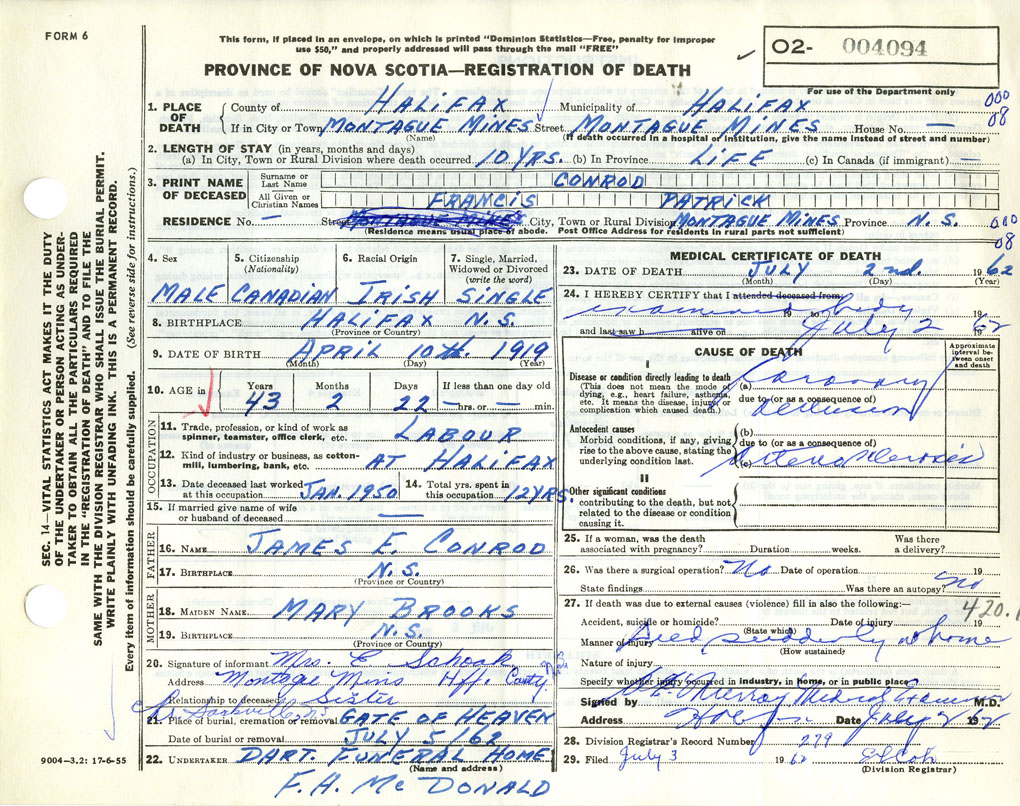 FORM 6
This form, if placed in an envelope, on which is printed "Dominion Statistics—Free, penalty for improper
use $50," and properly addressed will pass through the mail "FREE"
PROVINCE OF NOVA SCOTIA—REGISTRATION OF DEATH
O2- 004094
For use of the Department only
SEC. 14—VITAL STATISTICS ACT MAKES IT THE DUTY
OF THE UNDERTAKER OR PERSON ACTING AS UNDER-
TAKER TO OBTAIN ALL THE PARTICULARS REQUIRED
IN THE "REGISTRATION OF DEATH" AND TO FILE THE
SAME WITH THE DIVISION REGISTRAR WHO SHALL ISSUE THE BURIAL PERMIT.
WRITE PLAINLY WITH UNFADING INK. THIS IS A PERMANENT RECORD.
Every item of information should be carefully supplied. (See reverse side for instructions.)
1. PLACE OF DEATH
County of HALIFAX Municipality of HALIFAX
000
08
If in City or Town MONTAGUE MINES Street MONTAGUE MINES House No. —
(Name) (If death occurred in a hospital or institution, give the name instead of street and number)
2. LENGTH OF STAY (in years, months and days)
(a) In City, Town or Rural Division where death occurred 10 YRS. (b) In Province LIFE (c) In Canada (if immigrant) —
3. PRINT NAME OF DECEASED
Surname or Last Name CONROD
All Given or Christian Names FRANCIS PATRICK
RESIDENCE No. — Street MONTAGUE MINES City, Town or Rural Division MONTAGUE MINES Province N.S.
000
08
(Residence means usual place of abode. Post Office Address for residents in rural parts not sufficient)
4. Sex 5. Citizenship (Nationality) 6. Racial Origin 7. Single, Married, Widowed or Divorced (write the word)
MALE CANADIAN IRISH SINGLE
8. BIRTHPLACE HALIFAX N.S.
(Province or Country)
9. DATE OF BIRTH APRIL 10th. 1919
(Month) (Day) (Year)
10. AGE in Years Months Days If less than one day old
43 2 22 — hrs. or — min.
OCCUPATION
11. Trade, profession, or kind of work as
spinner, teamster, office clerk, etc. LABOUR
12. Kind of industry or business, as cotton-
mill, lumbering, bank, etc. AT HALIFAX
13. Date deceased last worked
at this occupation JAN. 1950 14. Total yrs. spent in
this occupation 12 YRS.
15. If married give name of wife
or husband of deceased —
FATHER
16. NAME JAMES E. CONROD
17. BIRTHPLACE N.S.
(Province or Country)
MOTHER
18. MAIDEN NAME MARY BROOKS
19. BIRTHPLACE N.S.
(Province or Country)
20. Signature of informant Mrs.
Address Montague Mines Hfx. County
Relationship to deceased Sister
21. Place of burial, cremation or removal GATE OF HEAVEN
Date of burial or removal JULY 5/62
22. UNDERTAKER DART. FUNERAL HOME
(Name and address)
F.H. McDONALD
9004—3.2: 17-6-55
MEDICAL CERTIFICATE OF DEATH
23. DATE OF DEATH JULY 2nd. 1962
(Month) (Day) (Year)
24. I HEREBY CERTIFY that I attended deceased from
examined 19 to body 19
and last saw h alive on July 2 1962
CAUSE OF DEATH
Approximate interval between onset and death
I
Disease or condition directly leading to death
(This does not mean the mode of
dying, e.g., heart failure, asthenia,
etc. It means the disease, injury, or
complication which caused death.)
(a) Coronary
due to (or as a consequence of)
occlusion
Antecedent causes
Morbid conditions, if any, giving
rise to the above cause, stating the
underlying condition last.
(b)
due to (or as a consequence of)
(c) Arteriosclerosis
II
Other significant conditions
contributing to the death, but not
related to the disease or condition
causing it.
25. If a woman, was the death
associated with pregnancy? Duration weeks. Was there
a delivery?
26. Was there a surgical operation? No Date of operation 19
State findings Was there an autopsy? No
27. If death was due to external causes (violence) fill in also the following:— 420.1
Accident, suicide or homicide? (State which) Date of injury 19
Manner of injury Died suddenly at home
(How sustained)
Nature of injury
Specify whether injury occurred in industry, in home, or in public place
Signed by Murray Medical Examiner M.D.
Address Date July 2 1962
28. Division Registrar's Record Number 279
29. Filed July 3 1962
(Division Registrar)